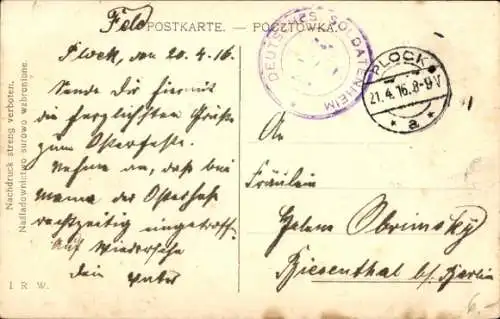 Feld POSTKARTE. — POCZTÓWKA.
Plock, den 20.4.16.
Sende Dir hiermit
die herzlichsten Grüße
zum Osterfeste.
Nehme an, dass bei
Mama der Osterhase
rechtzeitig eingetroffen.
Auf Wiedersehn
Dein Vater
DEUTSCHES SOLDATENHEIM
PLOCK
21.4.16.8-9V
* a *
An
Fräulein
Helene Obrimsky
Biesenthal b/ Berlin
Nachdruck streng verboten.
Naśladownictwo surowo wzbronione.
I R W.
6.-